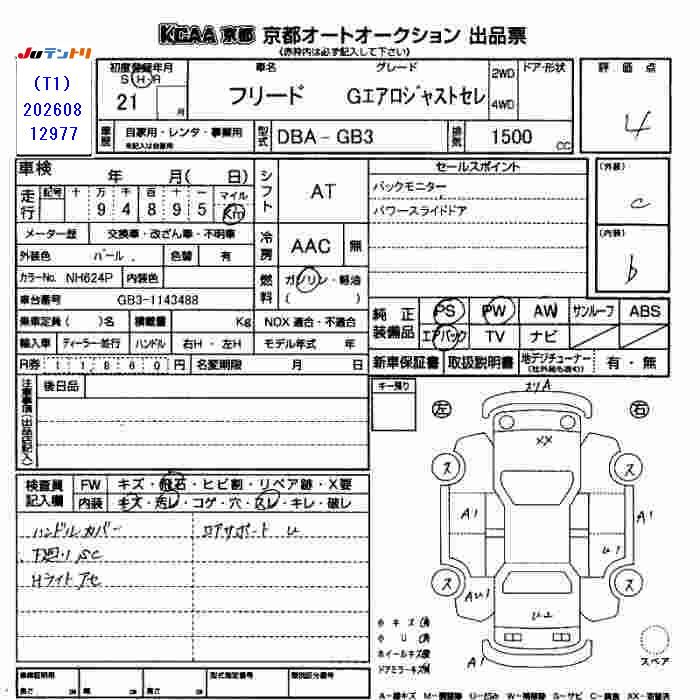 KCAA 京都 京都オートオークション 出品票
(赤枠内は必ず記入して下さい)
JUテントリ
(T1)
202608
12977
初度登録年月
S H R
21 月
車名
フリード
グレード
Gエアロジャストセレ
2WD
4WD
ドア・形状
評価点
4
車歴
自家用・レンタ・事業用
未記入は自家用
型式
DBA-GB3
排気
1500 CC
車検 年 月( 日)
走行
記号 十 万 千 百 十 一 マイル
9 4 8 9 5 Km
シフト
AT
メーター歴 交換車・改ざん車・不明車
外装色 パール 色替 有
カラーNo. NH624P 内装色
冷房
AAC 無
燃料
ガソリン・軽油
( )
車台番号 GB3-1143488
乗車定員( )名 積載量 Kg NOX 適合・不適合
輸入車 ディーラー・並行 ハンドル 右H・左H モデル年式 年
R券 11860円 名変期限 月 日
セールスポイント
バックモニター
パワースライドドア
(外装)
c
(内装)
b
純正装備品
PS PW AW サンルーフ ABS
エアバック TV ナビ
新車保証書 取扱説明書 地デジチューナー 有・無
(社外品も含む)
注意事項(出品店記入)
後日品
キー預り
検査員記入欄
FW キズ・飛石・ヒビ割・リペア跡・X要
内装 キズ・汚レ・コゲ・穴・スレ・キレ・破レ
ハンドルカバー
ロアサポート U
下廻り SC
Hライト アセ
左
右
スリA
XX
ス
ス
A1
A1
U1
ス
ス
AU1
U2
A1
小キズ
小U
ホイールキズ
ドアミラーキズ
スペア
車検証明用
長さ
幅
高さ
型式指定番号
類別区分番号